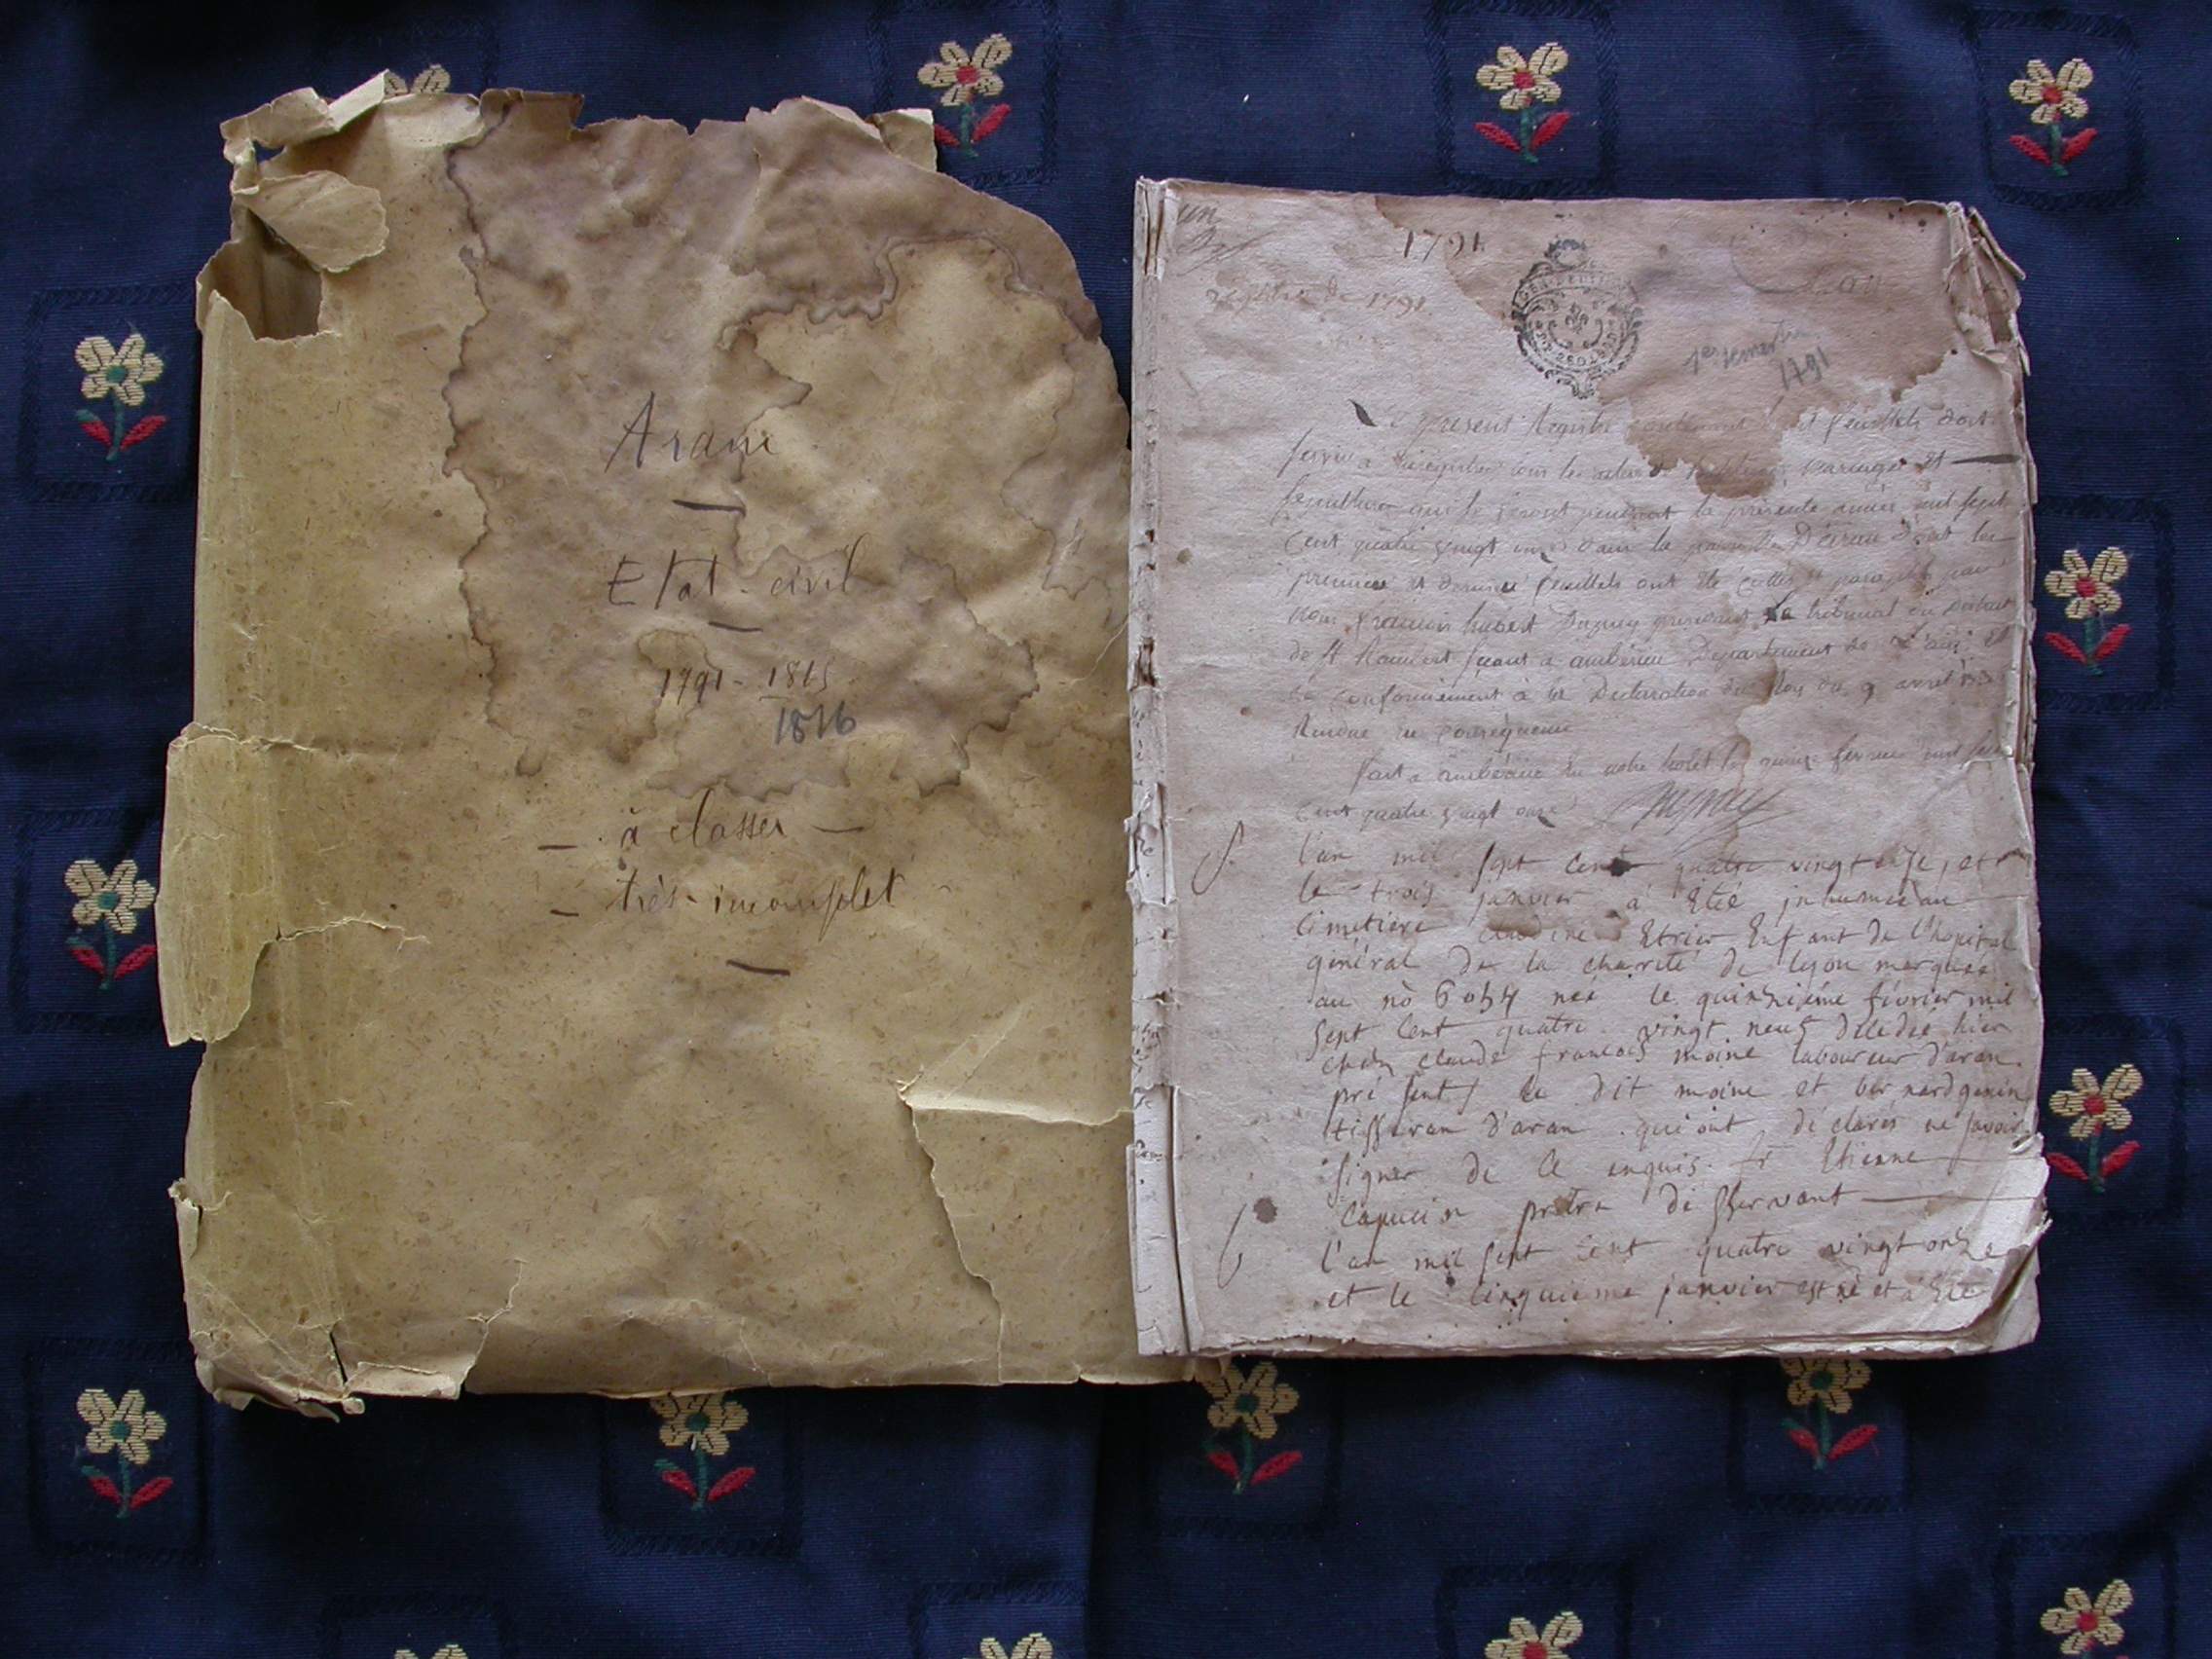 Aran
Etat-civil
1791 - 1815
1816
- à classer -
- très-incomplet
un
1791
registre de 1791
1er semestre
1791
Le present Registre contenant feuillets doit
servir a enregistrer tous les actes de mariages et
sepultures qui se feront pendant la presente année mil sept
cent quatre vingt onze dans la paroisse D'aran dont les
premier et dernier feuillets ont été cottés et paraphés par
nous françois hubert Dupuy president du tribunal du District
de St Rambert seant a amberieu Departement de L'ain et
ce conformement à la Declaration du Roy du 9 avril
Rendue en consequence
fait a amberieu en notre hotel le janvier mil sept
cent quatre vingt onze Dupuy
l'an mil sept cent quatre vingt onze, et
le trois janvier à Eteé inhumeé au
cimetiere claudine Etrier Enfant de l'hopital
général de la charité de lyon marqueé
au no 6054 neé le quinzieme février mil
sept cent quatre vingt neuf décedeé hier
chez claude francois moine laboureur d'aran
présent le dit moine et bernard genin
tisseran d'aran qui ont déclarés ne savoir
signer de ce enquis. fr Etienne
capucin pretre désservant
l'an mil sept cent quatre vingt onze
et le cinquieme janvier est né et à Eté